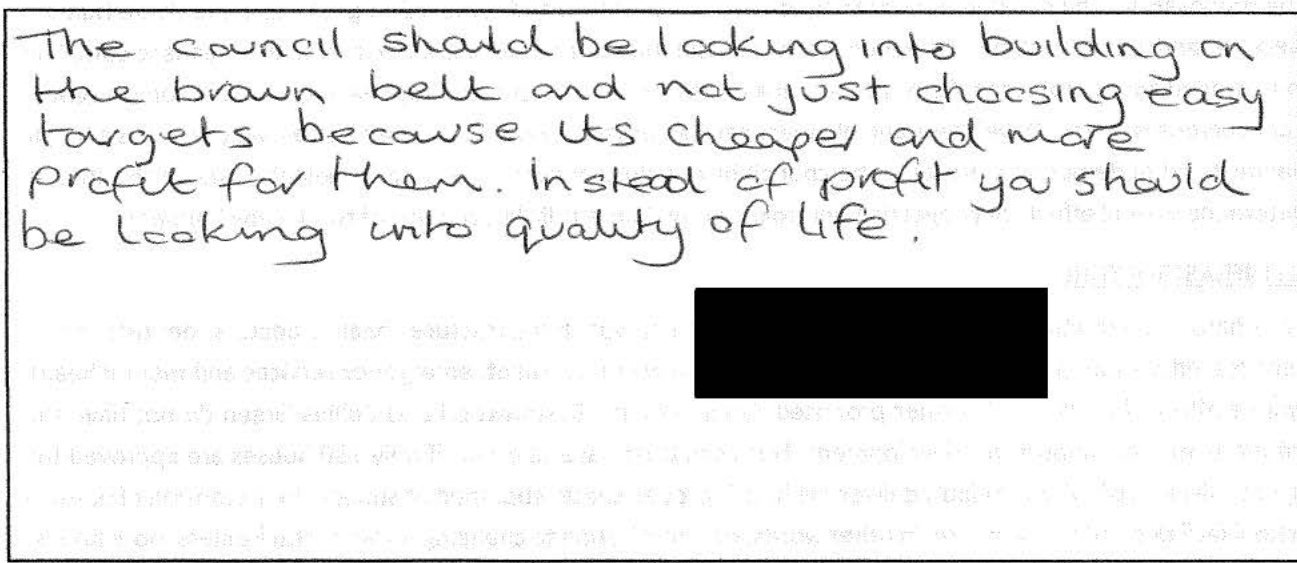 The council should be looking into building on
the brown belt and not just choosing easy
targets because its cheaper and more
profit for them. Instead of profit you should
be looking into quality of life.